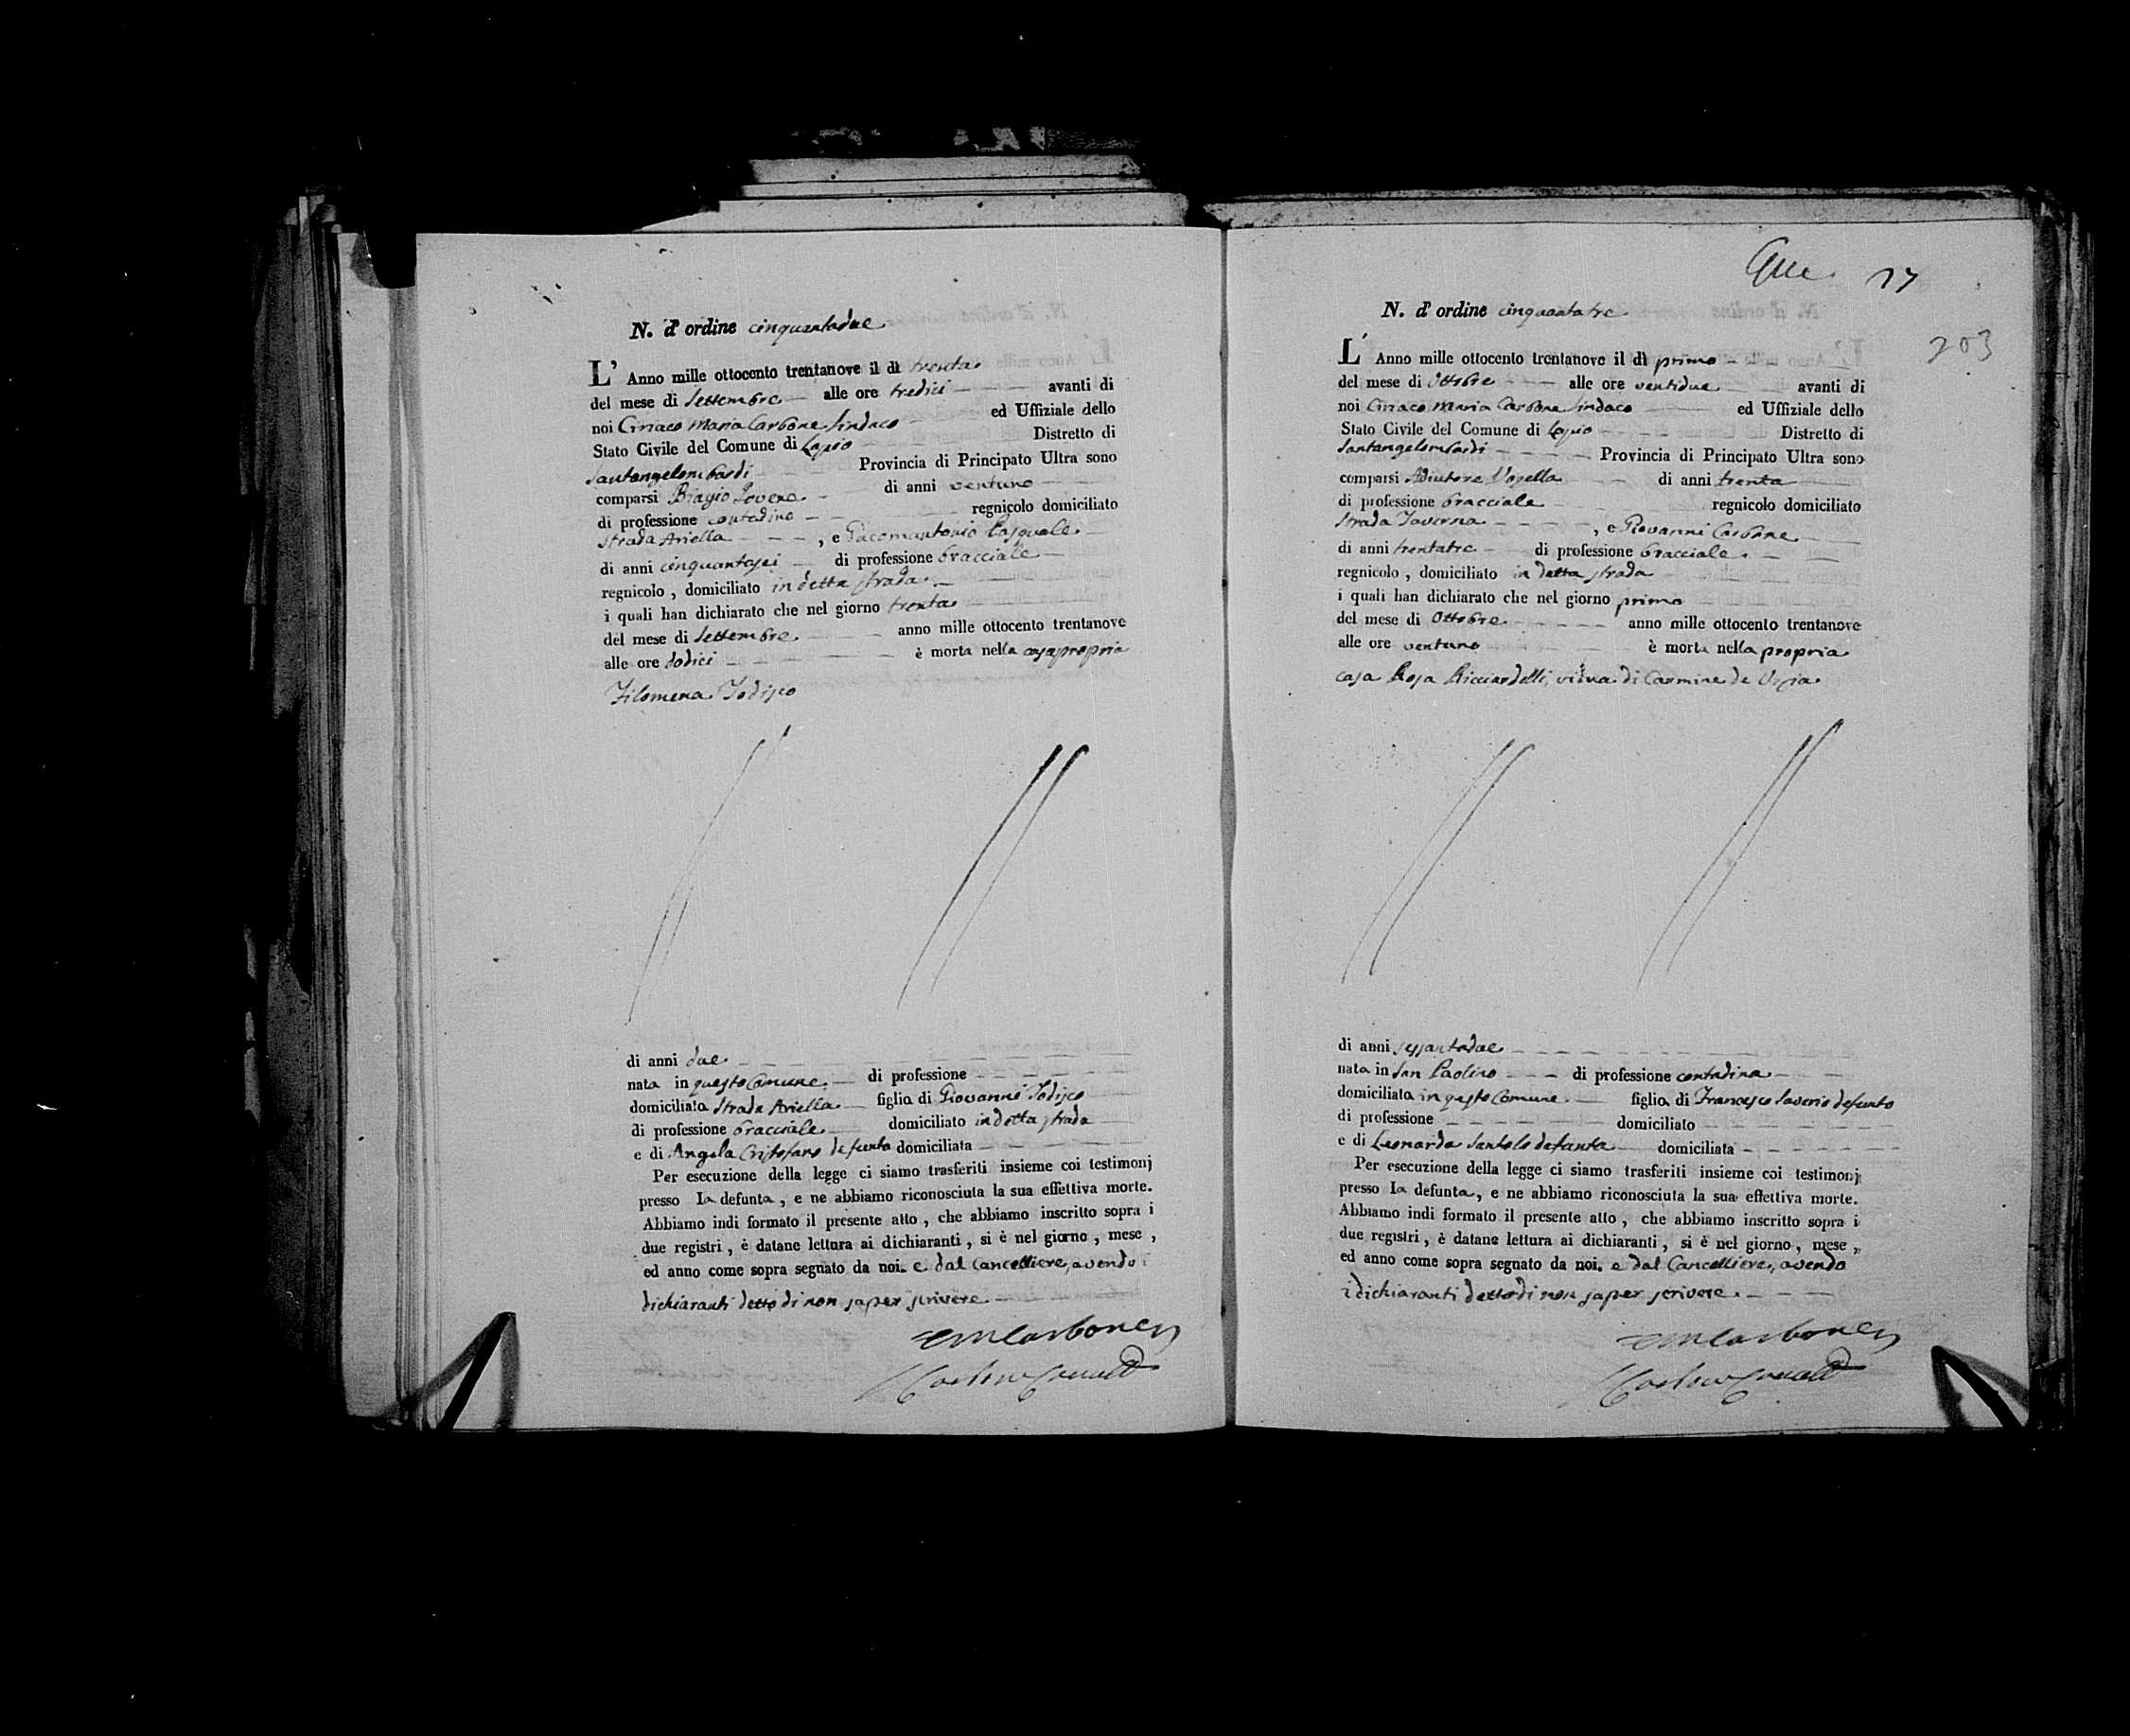 N. d' ordine cinquantadue
L' Anno mille ottocento trentanove il dì trenta
del mese di Settembre alle ore tredici avanti di
noi Ciriaco Maria Carbone Sindaco ed Uffiziale dello
Stato Civile del Comune di Lapio Distretto di
Santangelombardi Provincia di Principato Ultra sono
comparsi Biagio Iovene di anni ventuno
di professione contadino regnicolo domiciliato
strada Ariella , e Giacomantonio Pasquale
di anni cinquantasei di professione bracciale
regnicolo , domiciliato in detta strada
i quali han dichiarato che nel giorno trenta
del mese di Settembre anno mille ottocento trentanove
alle ore dodici è morta nella casa propria
Filomena Iodisco
di anni due
nata in questo Comune di professione
domiciliata Strada Ariella figlia di Giovanni Iodisco
di professione bracciale domiciliato in detta strada
e di Angela Cristofano defunta domiciliata
Per esecuzione della legge ci siamo trasferiti insieme coi testimonj
presso la defunta , e ne abbiamo riconosciuta la sua effettiva morte.
Abbiamo indi formato il presente atto , che abbiamo inscritto sopra i
due registri , è datane lettura ai dichiaranti , si è nel giorno , mese ,
ed anno come sopra segnato da noi. e dal Cancelliere, avendo i
dichiaranti detto di non saper scrivere
CMCarbone
17
203
N. d' ordine cinquantatre
L' Anno mille ottocento trentanove il dì primo
del mese di Ottobre alle ore ventidue avanti di
noi Ciriaco Maria Carbone Sindaco ed Uffiziale dello
Stato Civile del Comune di Lapio Distretto di
Santangelombardi Provincia di Principato Ultra sono
comparsi Adiutore di anni trenta
di professione bracciale regnicolo domiciliato
strada Taverna , e Giovanni Carbone
di anni trentatre di professione bracciale
regnicolo , domiciliato in detta strada
i quali han dichiarato che nel giorno primo
del mese di Ottobre anno mille ottocento trentanove
alle ore ventuno è morta nella propria
casa Rosa Ricciardelli, vidua di Carmine de
di anni sessantadue
nata in San Paolino di professione contadina
domiciliata in questo Comune figlia di Francesco Saverio defunto
di professione domiciliato
e di Leonarda Santolo defunta domiciliata
Per esecuzione della legge ci siamo trasferiti insieme coi testimonj
presso la defunta, e ne abbiamo riconosciuta la sua effettiva morte.
Abbiamo indi formato il presente atto , che abbiamo inscritto sopra i
due registri , è datane lettura ai dichiaranti , si è nel giorno , mese ,
ed anno come sopra segnato da noi. e dal Cancelliere, avendo
i dichiaranti detto di non saper scrivere.
CMCarbone